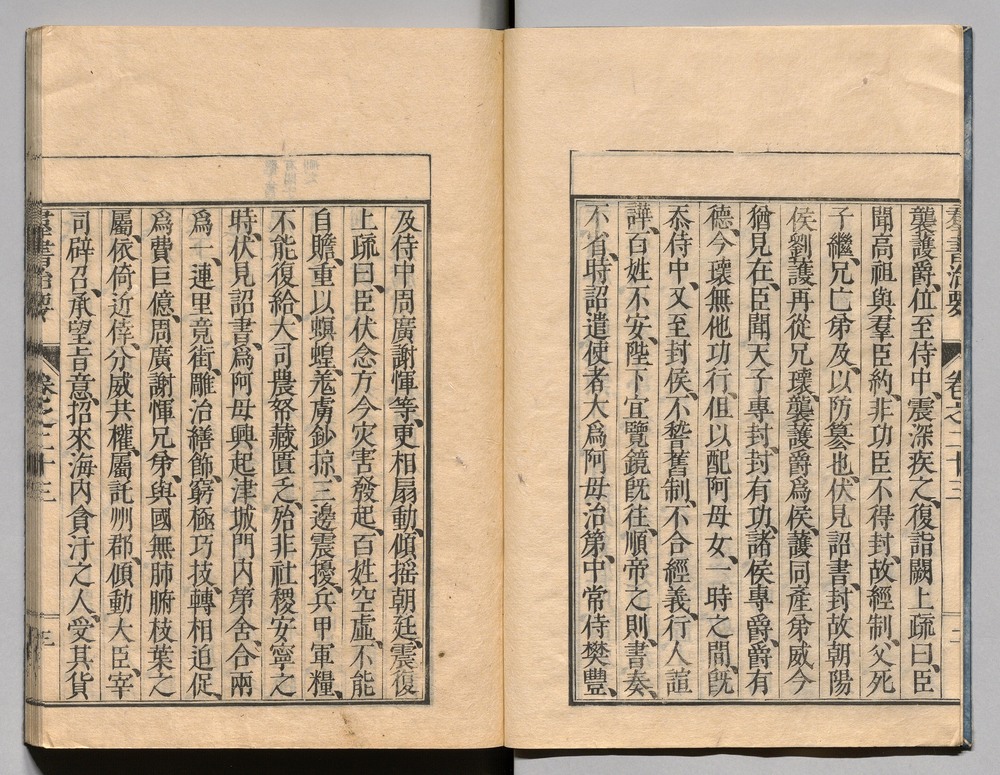 羣書治要 卷之二十三 二
襲護爵、位至侍中、震深疾之、復詣闕上疏曰、臣
聞高祖與羣臣約、非功臣不得封、故經制、父死
子繼、兄亡弟及、以防篡也、伏見詔書、封故朝陽
侯劉護再從兄瓌、襲護爵爲侯、護同產弟威今
猶見在、臣聞天子專封、封有功、諸侯專爵、爵有
德、今瓌無他功行、但以配阿母女、一時之間、旣
忝侍中、又至封侯、不稽舊制、不合經義、行人諠
譁、百姓不安、陛下宜覽鏡旣往、順帝之則、書奏、
不省、時詔遣使者大爲阿母治第、中常侍樊豐、
及侍中周廣謝惲等、更相扇動、傾搖朝廷、震復
上疏曰、臣伏念方今灾害發起、百姓空虛、不能
自贍、重以螟蝗、羗虜鈔掠、三邊震擾、兵甲軍糧、
不能復給、大司農帑藏匱乏、殆非社稷安寧之
時、伏見詔書、爲阿母興起津城門內第舍、合兩
爲一、連里竟街、雕治繕飾、窮極巧技、轉相迫促、
爲費巨億、周廣謝惲兄弟、與國無肺腑枝葉之
屬、依倚近倖、分威共權、屬託州郡、傾動大臣、宰
司辟召、承望旨意、招來海內貪汙之人、受其貨
羣書治要 卷之二十三 三